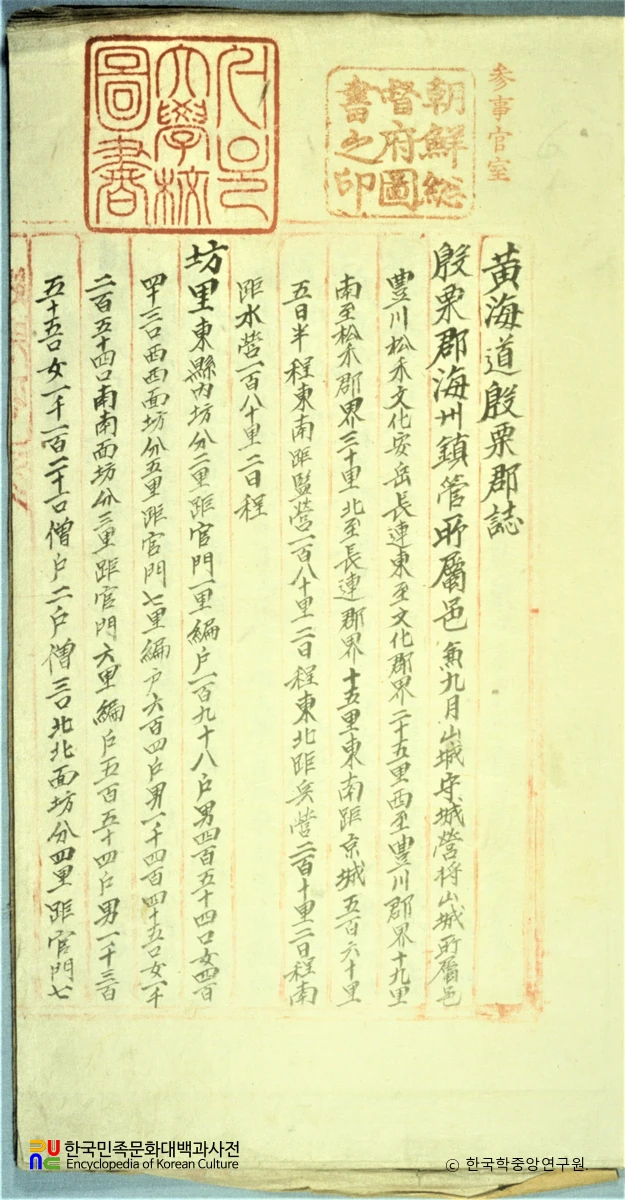 参事官室
朝鮮総
督府圖
書之印
서울
大學校
圖書
黃海道殷栗郡誌
殷栗郡海州鎮管所屬邑 兼九月山城守城營将山城所屬邑
豊川松禾文化安岳長連東至文化郡界二十五里西至豊川郡界十九里
南至松禾郡界三十里北至長連郡界十五里東南距京城五百六十里
五日半程東南距監營一百八十里二日程東北距兵營二百十里二日程南
距水營一百八十里二日程
坊里東縣內坊分二里距官門一里編户一百九十八户男四百五十四口女四百
四十三口西西面坊分五里距官門七里編户六百四户男一千四百四十五口女一千
二百五十四口南南面坊分三里距官門六里編户五百五十四户男一千三百
五十五口女一千一百二十一口僧户二户僧三口北北面坊分四里距官門七
한국민족문화대백과사전
Encyclopedia of Korean Culture
© 한국학중앙연구원